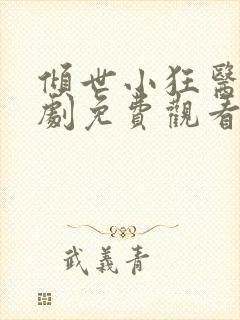 傾世小狂醫
劇免費觀看
武義青